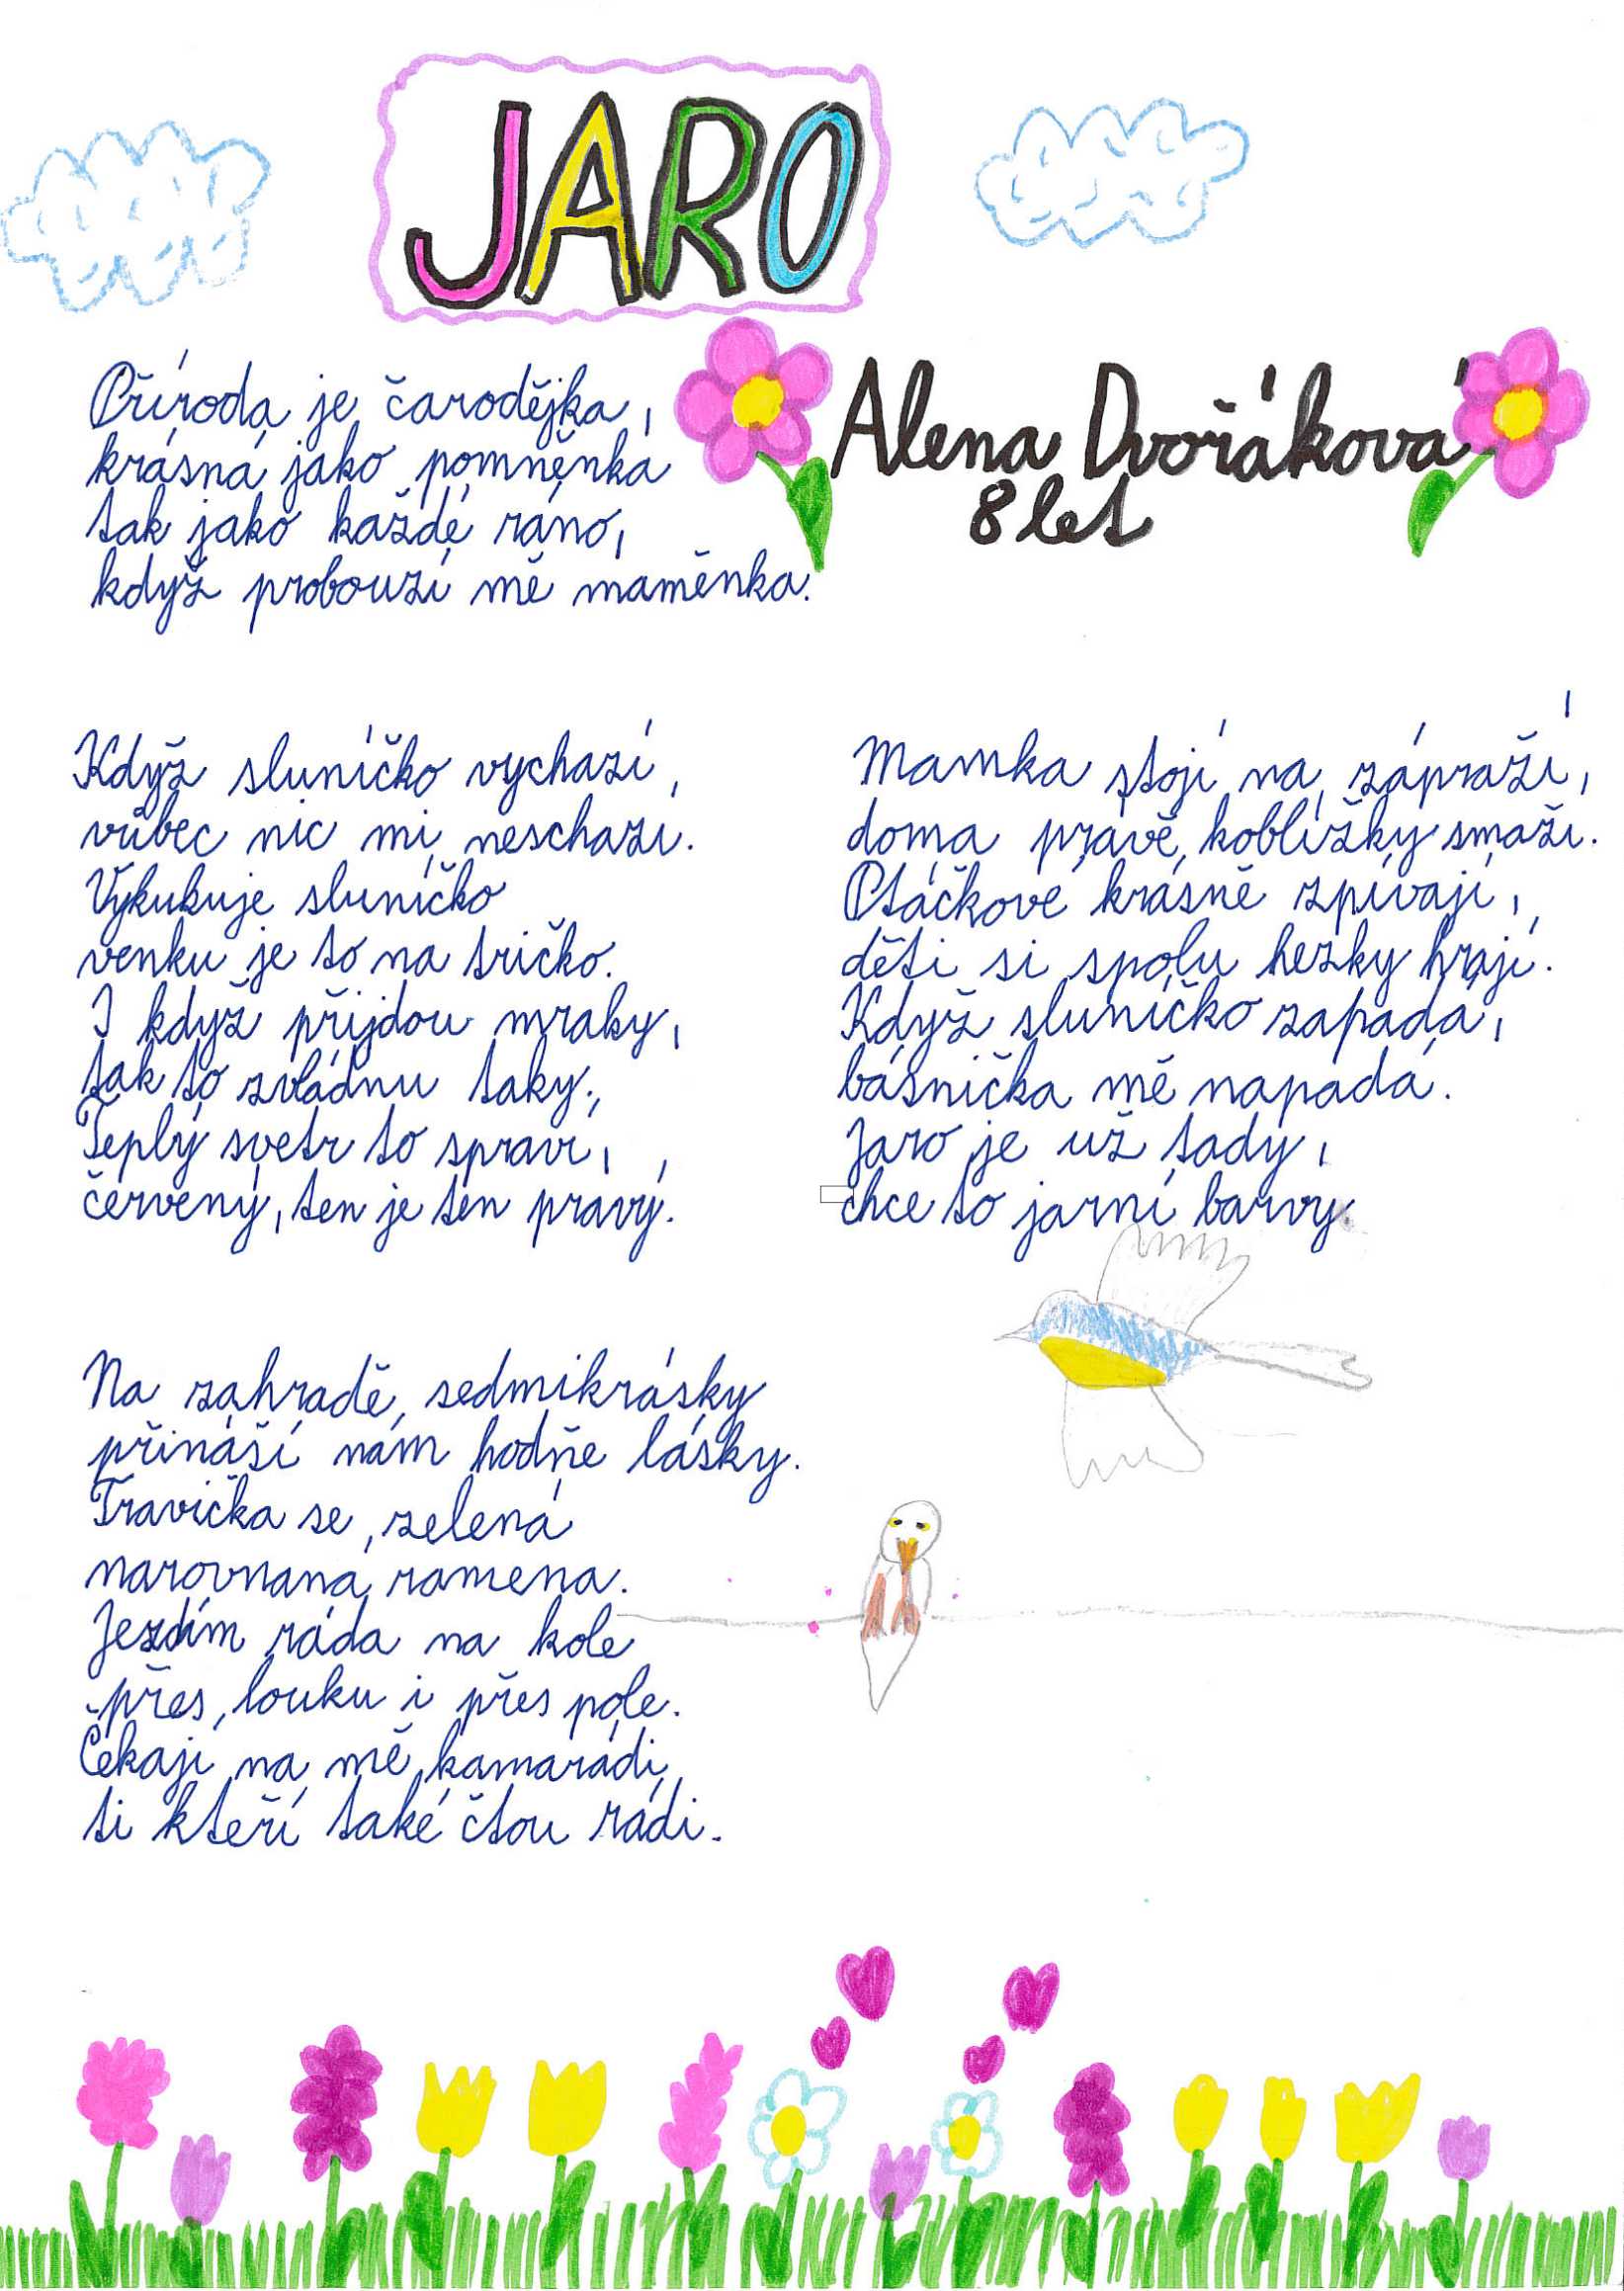 JARO
Alena Dvořáková
8 let
Příroda je čarodějka,
krásná jako pomněnka
tak jako každé ráno,
když probouzí mě maměnka.
Když sluníčko vychází,
vůbec nic mi neschází.
Vykukuje sluníčko
venku je to na tričko.
I když přijdou mraky,
tak to zvládnu taky.,
Teplý svetr to spraví,
červený, ten je ten pravý.
Na zahradě sedmikrásky
přináší nám hodňe lásky.
Travička se zelená
narovnaná ramena.
Jezdím ráda na kole
přes louku i přes pole.
Čekají na mě kamarádi,
ti kteří také čtou rádi.
Mamka stojí na zápraží,
doma právě koblížky smaží.
Ptáčkové krásně zpívají,
děti si spolu hezky hrají.
Když sluníčko zapadá,
básnička mě napadá.
Jaro je už tady,
chce to jarní barvy.